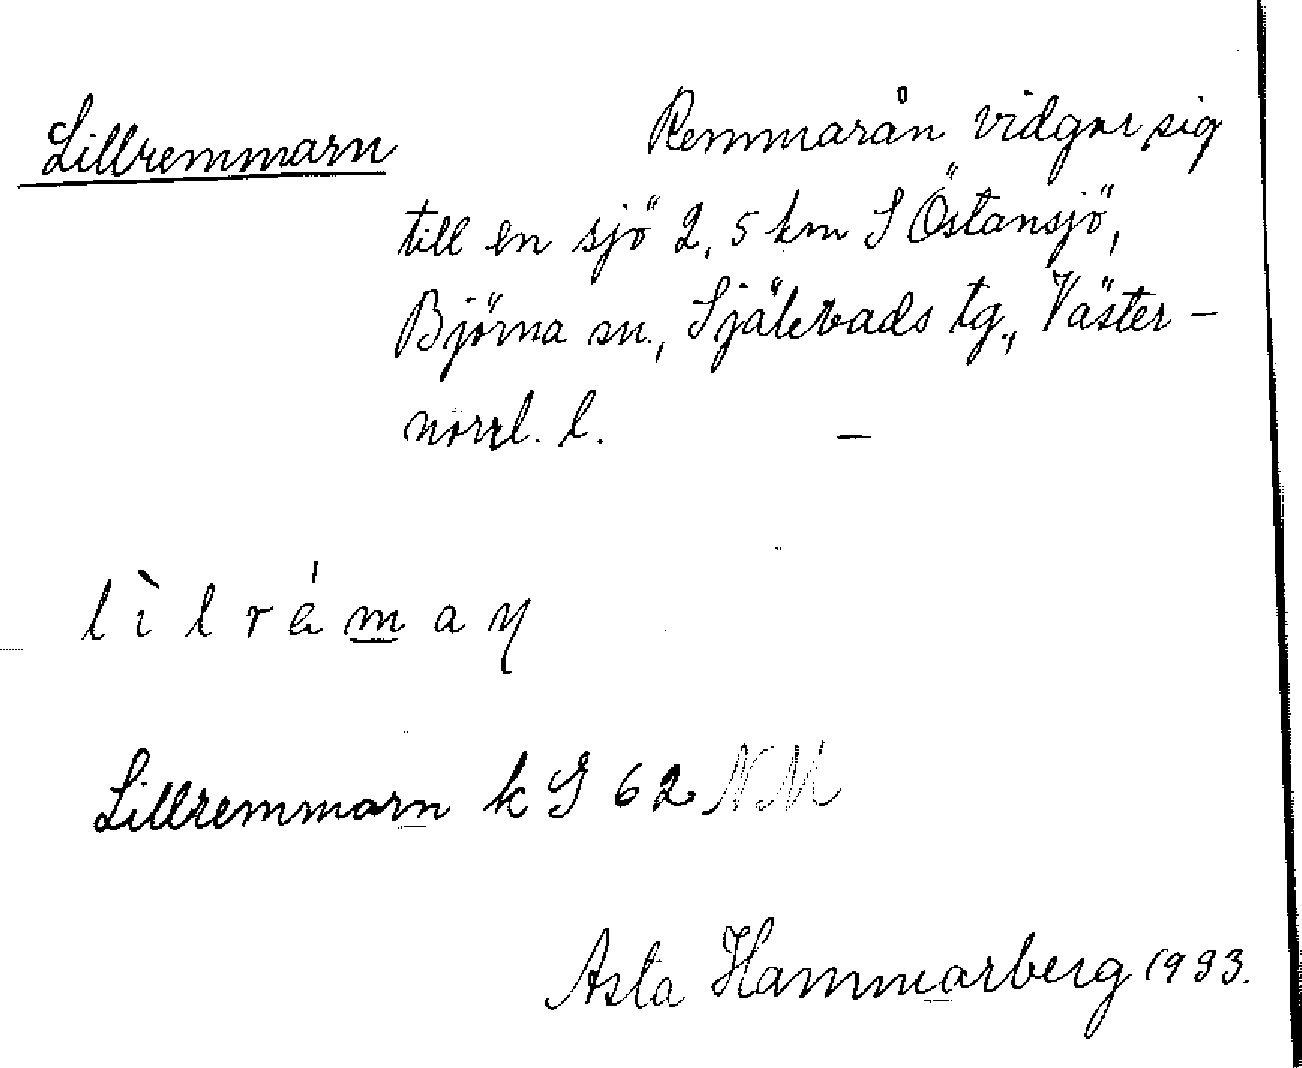 Lillremmarn Remmarån vidgar sig
till en sjö 2,5 km S Östansjö,
Björna sn., Själevads tg., Väster-
norrl. l. -
lìlrémaɳ
Lillremmarn k G 62 NM
Asta Hammarberg 1993.